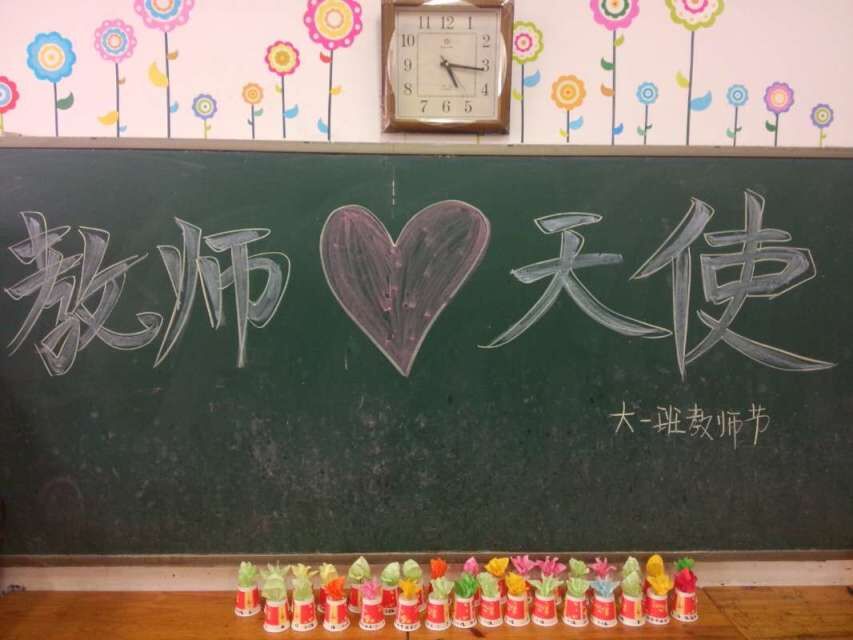 11 12 1
10 2
9 3
8 4
7 6 5
教师 天使
大一班教师节